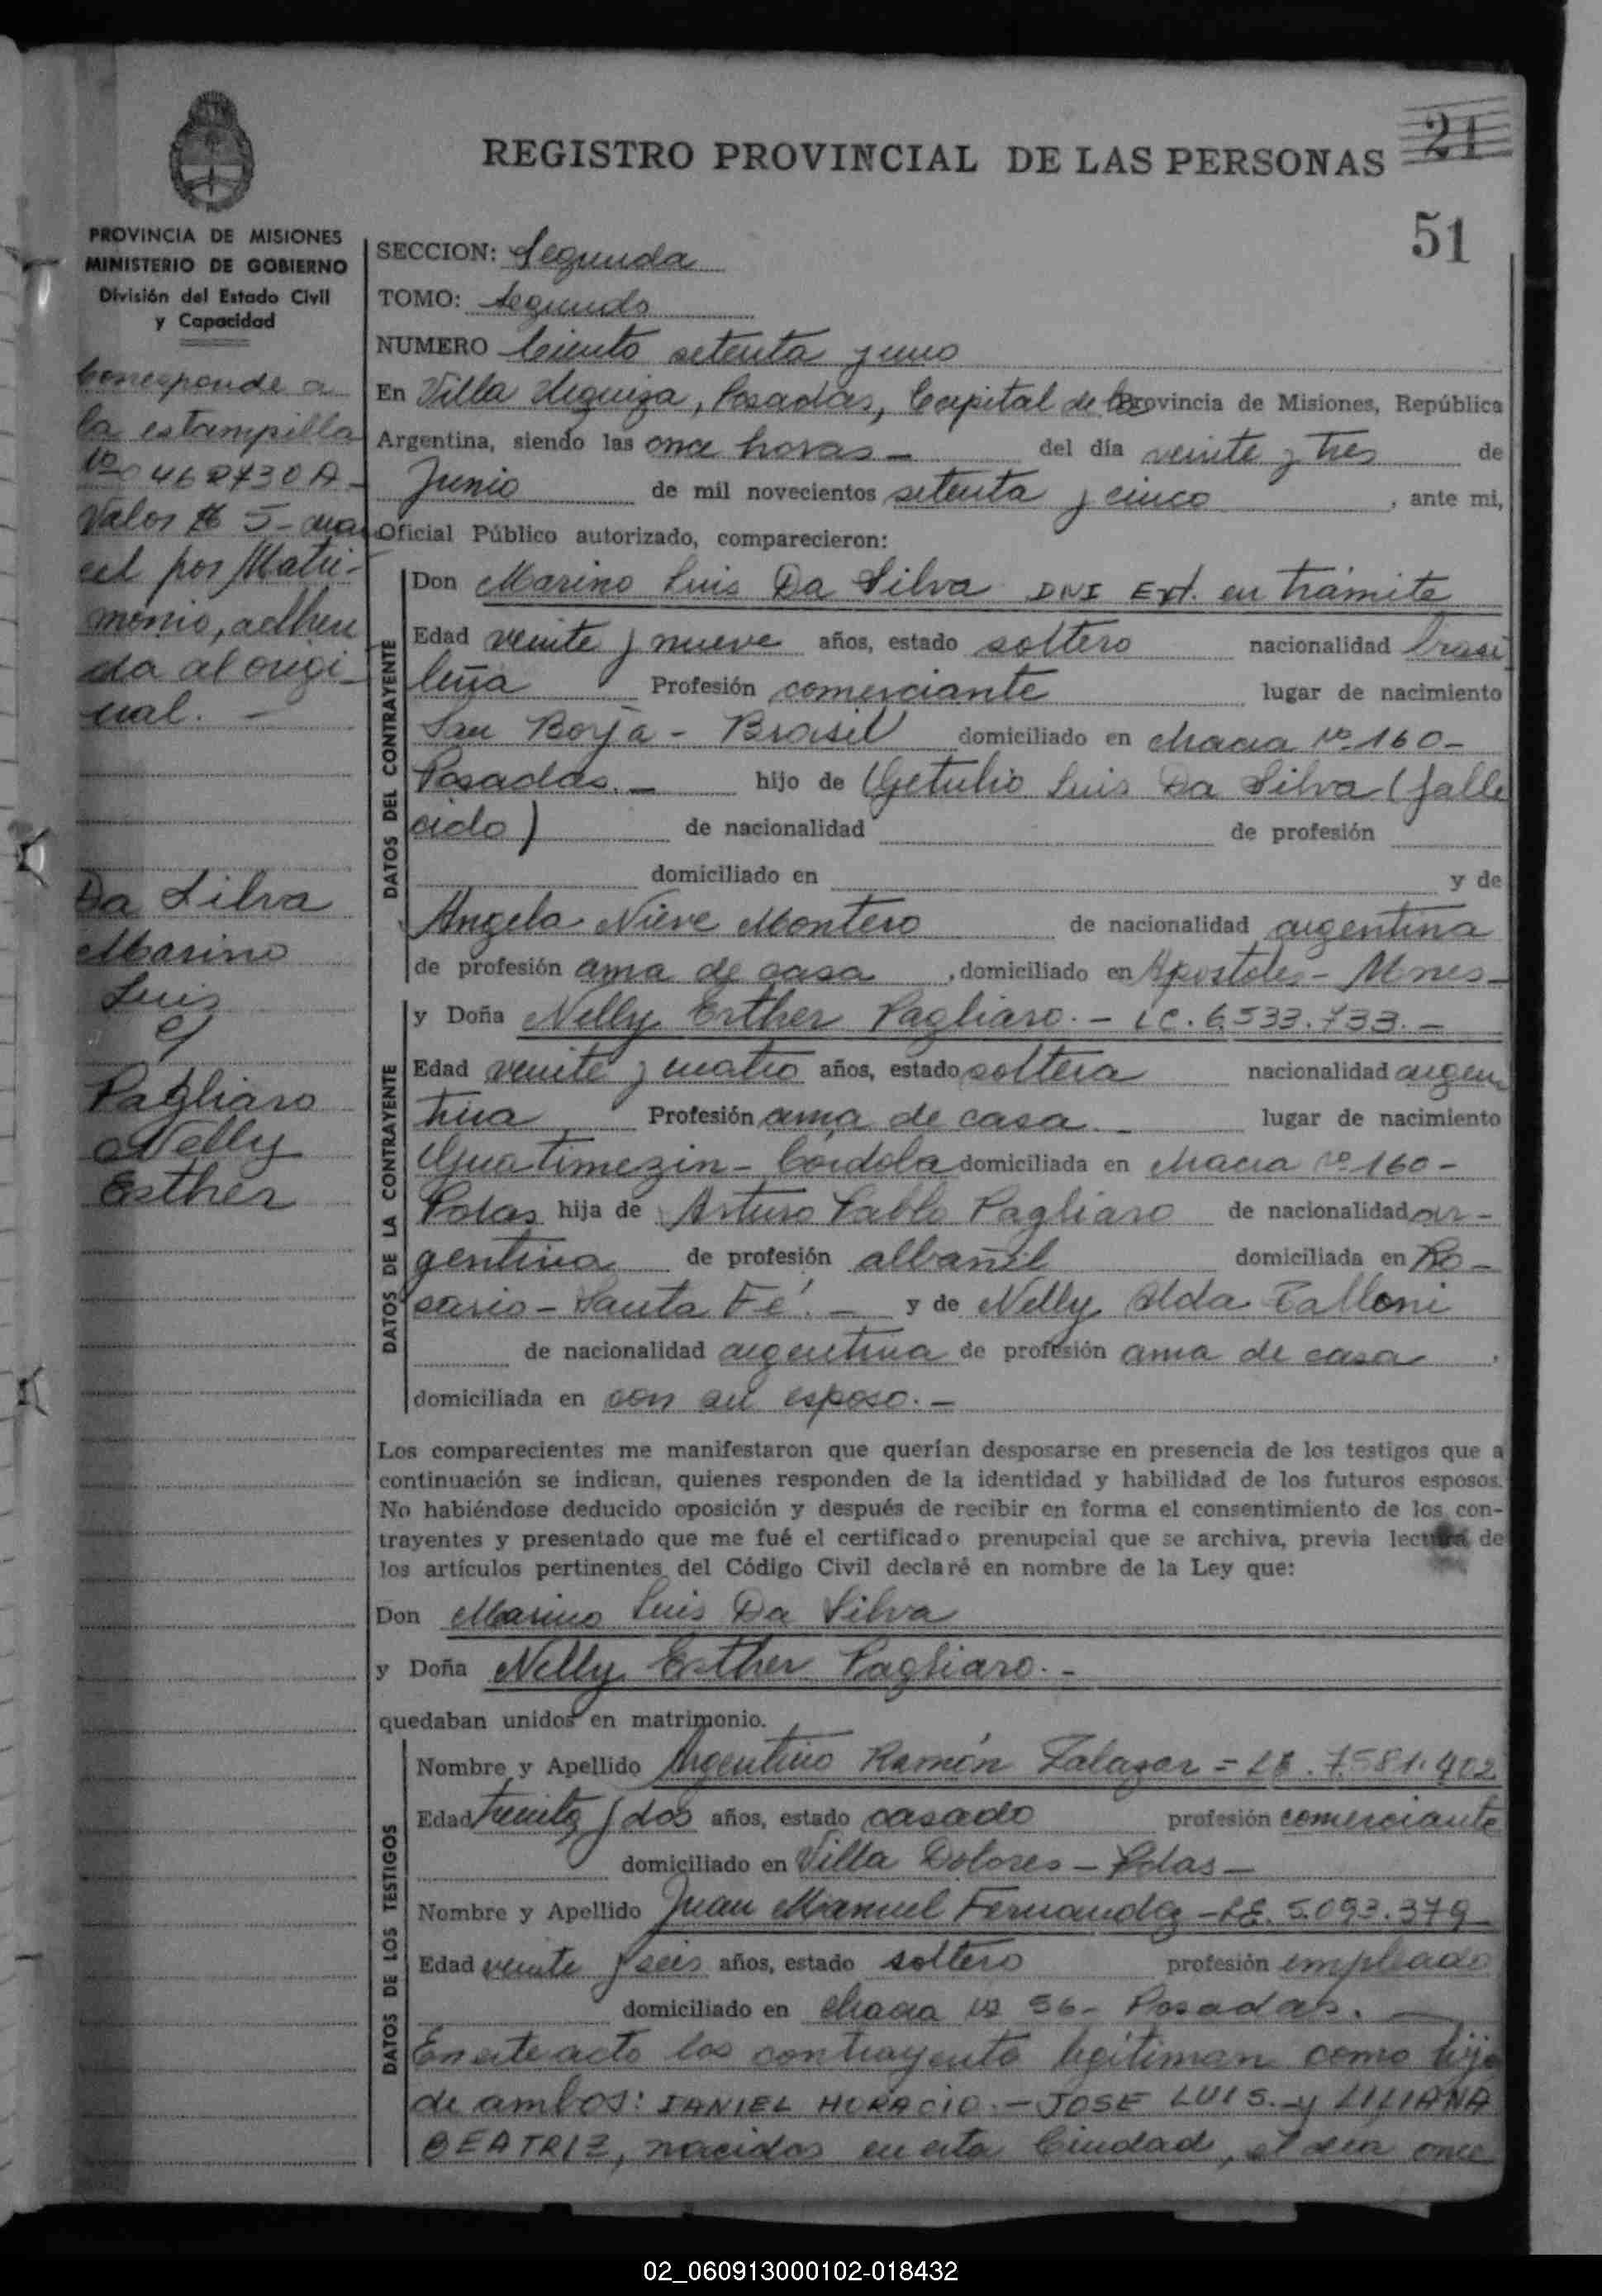 21
REGISTRO PROVINCIAL DE LAS PERSONAS
51
PROVINCIA DE MISIONES
MINISTERIO DE GOBIERNO
División del Estado Civil
y Capacidad
Corresponde a
la estampilla
Nº 462730 A -
Valor $ 5 -
por Matri-
monio, adheri
da al origi-
nal. -
Da Silva
Marino
Luis
c/
Pagliaro
Nelly
Esther
SECCION: Segunda
TOMO: Segundo
NUMERO Ciento setenta y uno
En Villa Urquiza, Posadas, Capital de la Provincia de Misiones, República
Argentina, siendo las once horas - del día veinte y tres de
Junio de mil novecientos setenta y cinco, ante mi,
Oficial Público autorizado, comparecieron:
DATOS DEL CONTRAYENTE
Don Marino Luis Da Silva DNI Ext. en trámite
Edad veinte y nueve años, estado soltero nacionalidad brasi
leña Profesión comerciante lugar de nacimiento
San Borja - Brasil domiciliado en chacra Nº 160 -
Posadas. - hijo de Getulio Luis Da Silva (falle
cido) de nacionalidad de profesión
domiciliado en y de
Angela Nieve Montero de nacionalidad argentina
de profesión ama de casa, domiciliado en Apostoles - Mnes -
DATOS DE LA CONTRAYENTE
y Doña Nelly Esther Pagliaro. - LC. 6.533.733. -
Edad veinte y cuatro años, estado soltera nacionalidad argen
tina Profesión ama de casa - lugar de nacimiento
Guatimozin - Córdoba domiciliada en chacra Nº 160 -
Pdas hija de Arturo Pablo Pagliaro de nacionalidad ar-
gentina de profesión albañil domiciliada en Ro-
sario - Santa Fé. - y de Nelly Alda Talloni
de nacionalidad argentina de profesión ama de casa.
domiciliada en con su esposo. -
Los comparecientes me manifestaron que querían desposarse en presencia de los testigos que a
continuación se indican, quienes responden de la identidad y habilidad de los futuros esposos.
No habiéndose deducido oposición y después de recibir en forma el consentimiento de los con-
trayentes y presentado que me fué el certificado prenupcial que se archiva, previa lectura de
los artículos pertinentes del Código Civil declaré en nombre de la Ley que:
Don Marino Luis Da Silva
y Doña Nelly Esther Pagliaro. -
quedaban unidos en matrimonio.
DATOS DE LOS TESTIGOS
Nombre y Apellido Argentino Ramón Zalazar = LE. 7.581.402
Edad treinta y dos años, estado casado profesión comerciante
domiciliado en Villa Dolores - Pdas -
Nombre y Apellido Juan Manuel Fernandez - LE. 5.093.379
Edad veinte y seis años, estado soltero profesión empleado
domiciliado en chacra Nº 56 - Posadas.
En este acto los contrayentes legitiman como hijos
de ambos: DANIEL HORACIO. - JOSE LUIS. - y LILIANA
BEATRIZ, nacidos en esta Ciudad, el día once
02_060913000102-018432